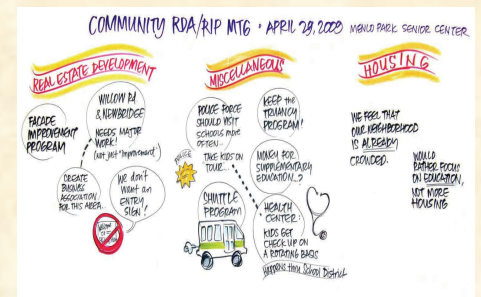 COMMUNITY RDA/RIP MTG • APRIL 29, 2009 MENLO PARK SENIOR CENTER
REAL ESTATE DEVELOPMENT
FACADE
IMPROVEMENT
PROGRAM
WILLOW RD
& NEWBRIDGE
NEEDS MAJOR
WORK!
(not just "improvement")
CREATE
BUSINESS
ASSOCIATION
FOR THIS AREA...
We don't
want an
ENTRY
SIGN!
MISCELLANEOUS
POLICE FORCE
SHOULD VISIT
SCHOOLS more
OFTEN...
POLICE
TAKE KIDS ON
TOUR...
KEEP the
TRUANCY
PROGRAM!
MONEY FOR
SUPPLEMENTARY
EDUCATION..?
SHUTTLE
PROGRAM
HEALTH
CENTER:
KIDS GET
CHECK UP ON
A ROTATING BASIS
Happens thru School District
HOUSING
WE FEEL THAT
OUR NEIGHBORHOOD
IS ALREADY
CROWDED.
WOULD
RATHER FOCUS
ON EDUCATION,
NOT MORE
HOUSING